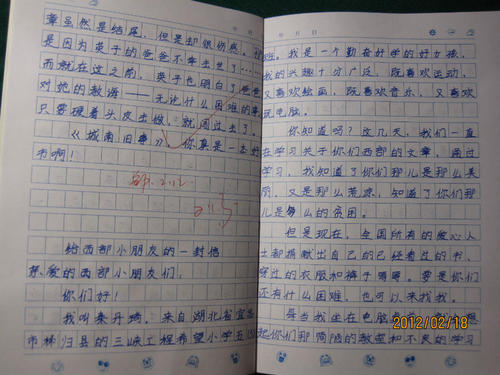 章虽然是结尾，但是却很伤感。
是因为英子的爸爸不幸去世了……
而就在这之前，英子也明白了爸爸
对她的教海——无论什么困难的事，
只要硬着头皮去做，就闯过去了。
《城南旧事》，你真是一本好
书啊！
2.12
给西部小朋友的一封信
亲爱的西部小朋友们：
你们好！
我叫秦丹琦，来自湖北省宜昌
市秭归县的三峡工程希望小学五
班。我是一个勤奋好学的好女孩，
我的兴趣十分广泛，既喜欢运动，
又喜欢绘画，既喜欢音乐，又喜欢
玩电脑。
你知道吗？这几天，我们一直
在学习关于你们西部的文章，通过
学习，我知道了你们那儿是那么美
丽，又是那么荒凉，知道了你们那
儿是多么的贫困。
但是现在，全国所有的爱心人
士都捐献出自己的已经看过的书、
穿过的衣服和裤子等等。要是你们
还有什么困难，也可以来找我。
每当我坐在电脑
起你们那简陋的教室和不良的学习
年 月 日
2012/02/18